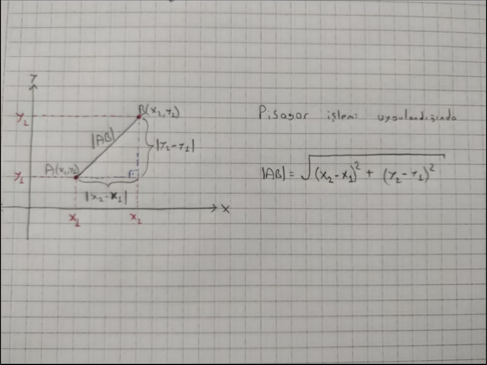 y
y₂
B(x₂,y₂)
|AB|
|y₂-y₁|
A(x₁,y₁)
y₁
|x₂-x₁|
x₁
x₂
x
Pisagor işlemi uygulandığında
|AB| = √(x₂-x₁)² + (y₂-y₁)²